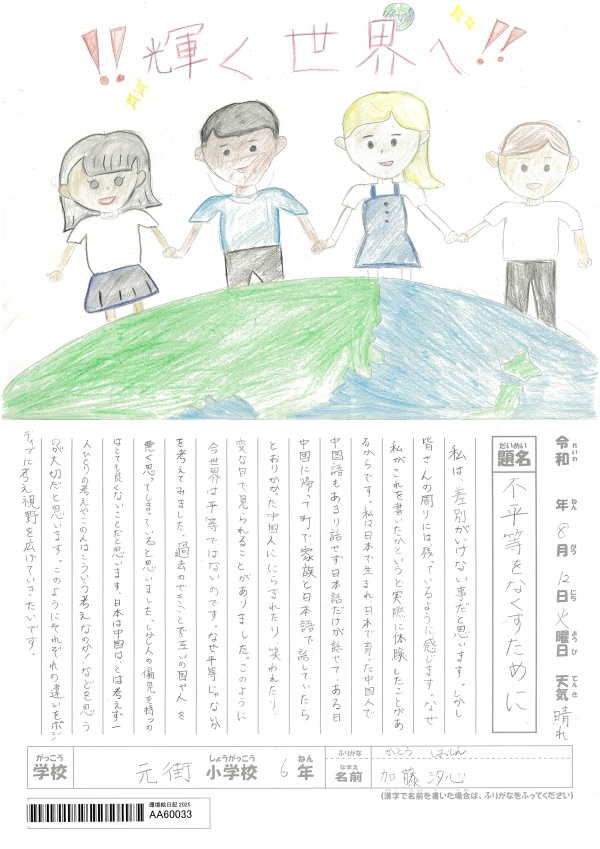 !! 輝く世界へ !!
令和 年 8月 12日 火曜日 天気 晴れ
れいわ ねん がつ にち ようび てんき
だいめい
題名
不平等をなくすために
私は、差別がいけない事だと思います。しかし
皆さんの周りには、残っているように感じます。なぜ
私がこれを書いたかというと実際に体験したことがあ
るからです。私は日本で生まれ日本で育った中国人で
中国語もあまり話せず日本語だけが話せて、ある日
中国に帰って町で家族と日本語で話していたら
とおりかかった中国人ににらまれたり、笑われたり、
変な目で見られることがありました。このように
今世界は平等ではないのです。なぜ平等じゃないか
を考えてみました。過去のできごとで互いの国や人を
悪く思ってしまっていると思いました。しかし人の偏見を持つの
はとても良くないことだと思います。日本は中国は、とは考えず一
人ひとりの考えやこの人はこういう考えなのか！などを思う
のが大切だと思います。このようにそれぞれの違いをポジ
ティブに考え視野を広げていきたいです。
がっこう
学校
元街
しょうがっこう
小学校
6
ねん
年
ふりがな
かとう しおしん
なまえ
名前
加藤 汐心
(漢字で名前を書いた場合は、ふりがなをふってください)
環境絵日記 2025
AA60033